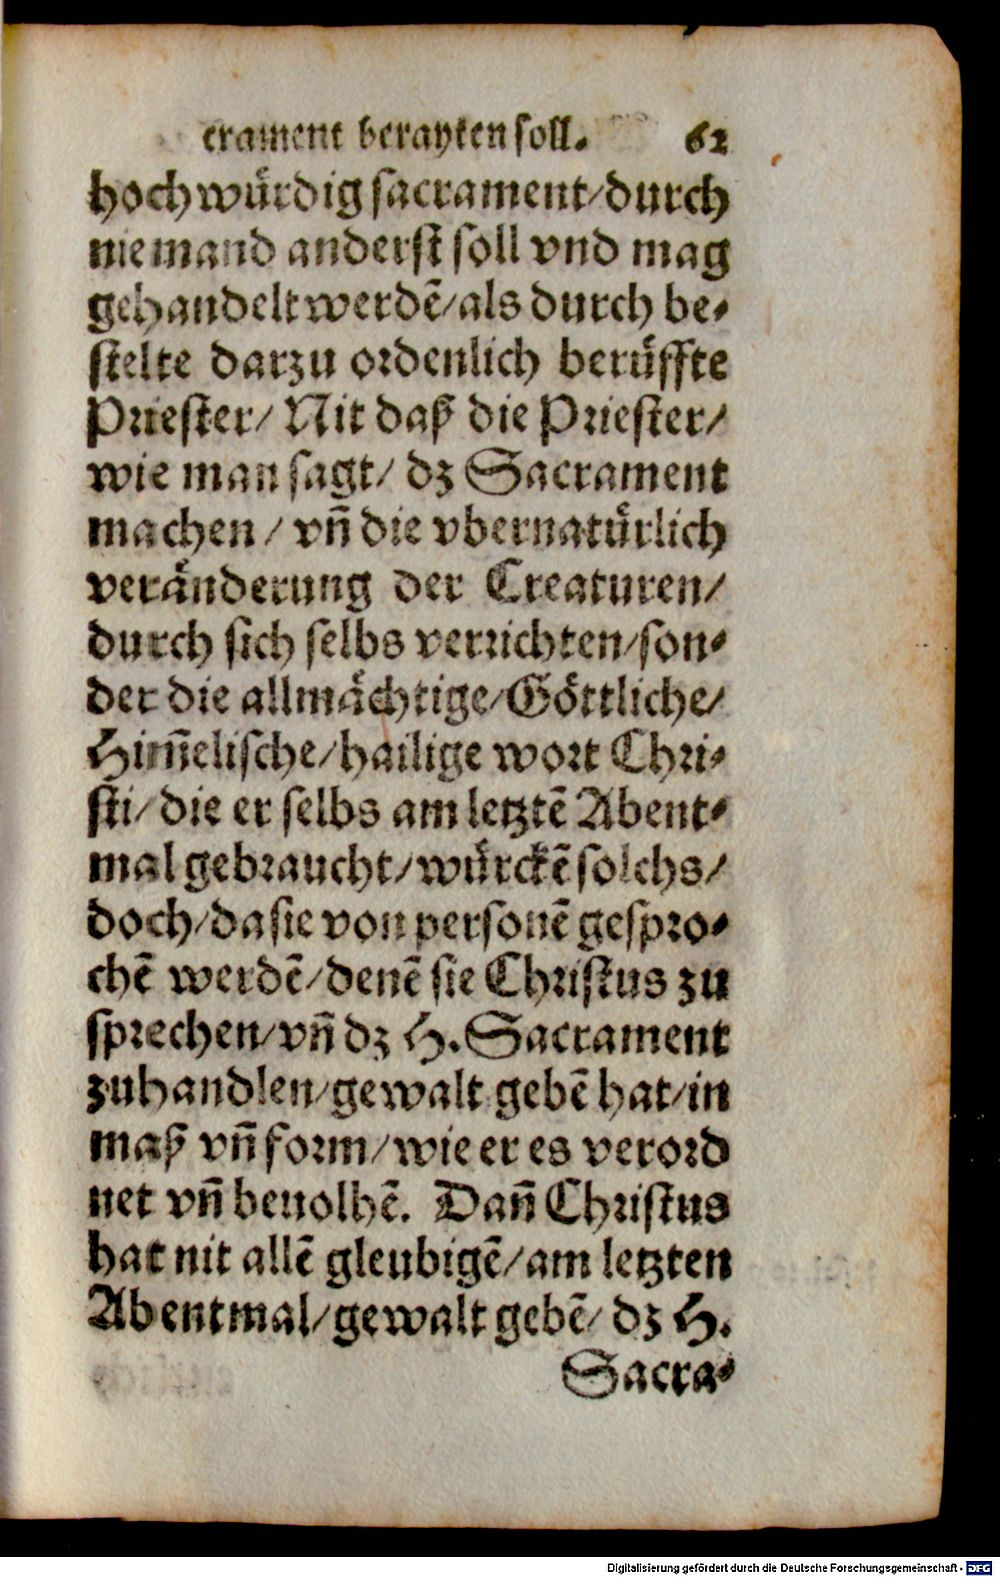 crament berayten soll. 62
hochwürdig sacrament/durch
niemand anderst soll vnd mag
gehandelt werdẽ/als durch be⸗
stelte darzu ordenlich berüffte
Priester/ Nit daß die Priester/
wie man sagt/ dz Sacrament
machen/ vñ die vbernatürlich
veränderung der Creaturen/
durch sich selbs verrichten/son⸗
der die allmächtige/Göttliche/
Him̃elische/hailige wort Chri⸗
sti/die er selbs am letztẽ Abent⸗
mal gebraucht/würckẽ solchs/
doch/da sie von personẽ gespro⸗
chẽ werdẽ/denẽ sie Christus zu
sprechen/vñ dz H. Sacrament
zuhandlen/gewalt gebẽ hat/in
maß vñ form/wie er es verord
net vñ beuolhẽ. Dañ Christus
hat nit allẽ gleubigẽ/am letzten
Abentmal/gewalt gebẽ/ dz H.
Sacra⸗
Digitalisierung gefördert durch die Deutsche Forschungsgemeinschaft - DFG